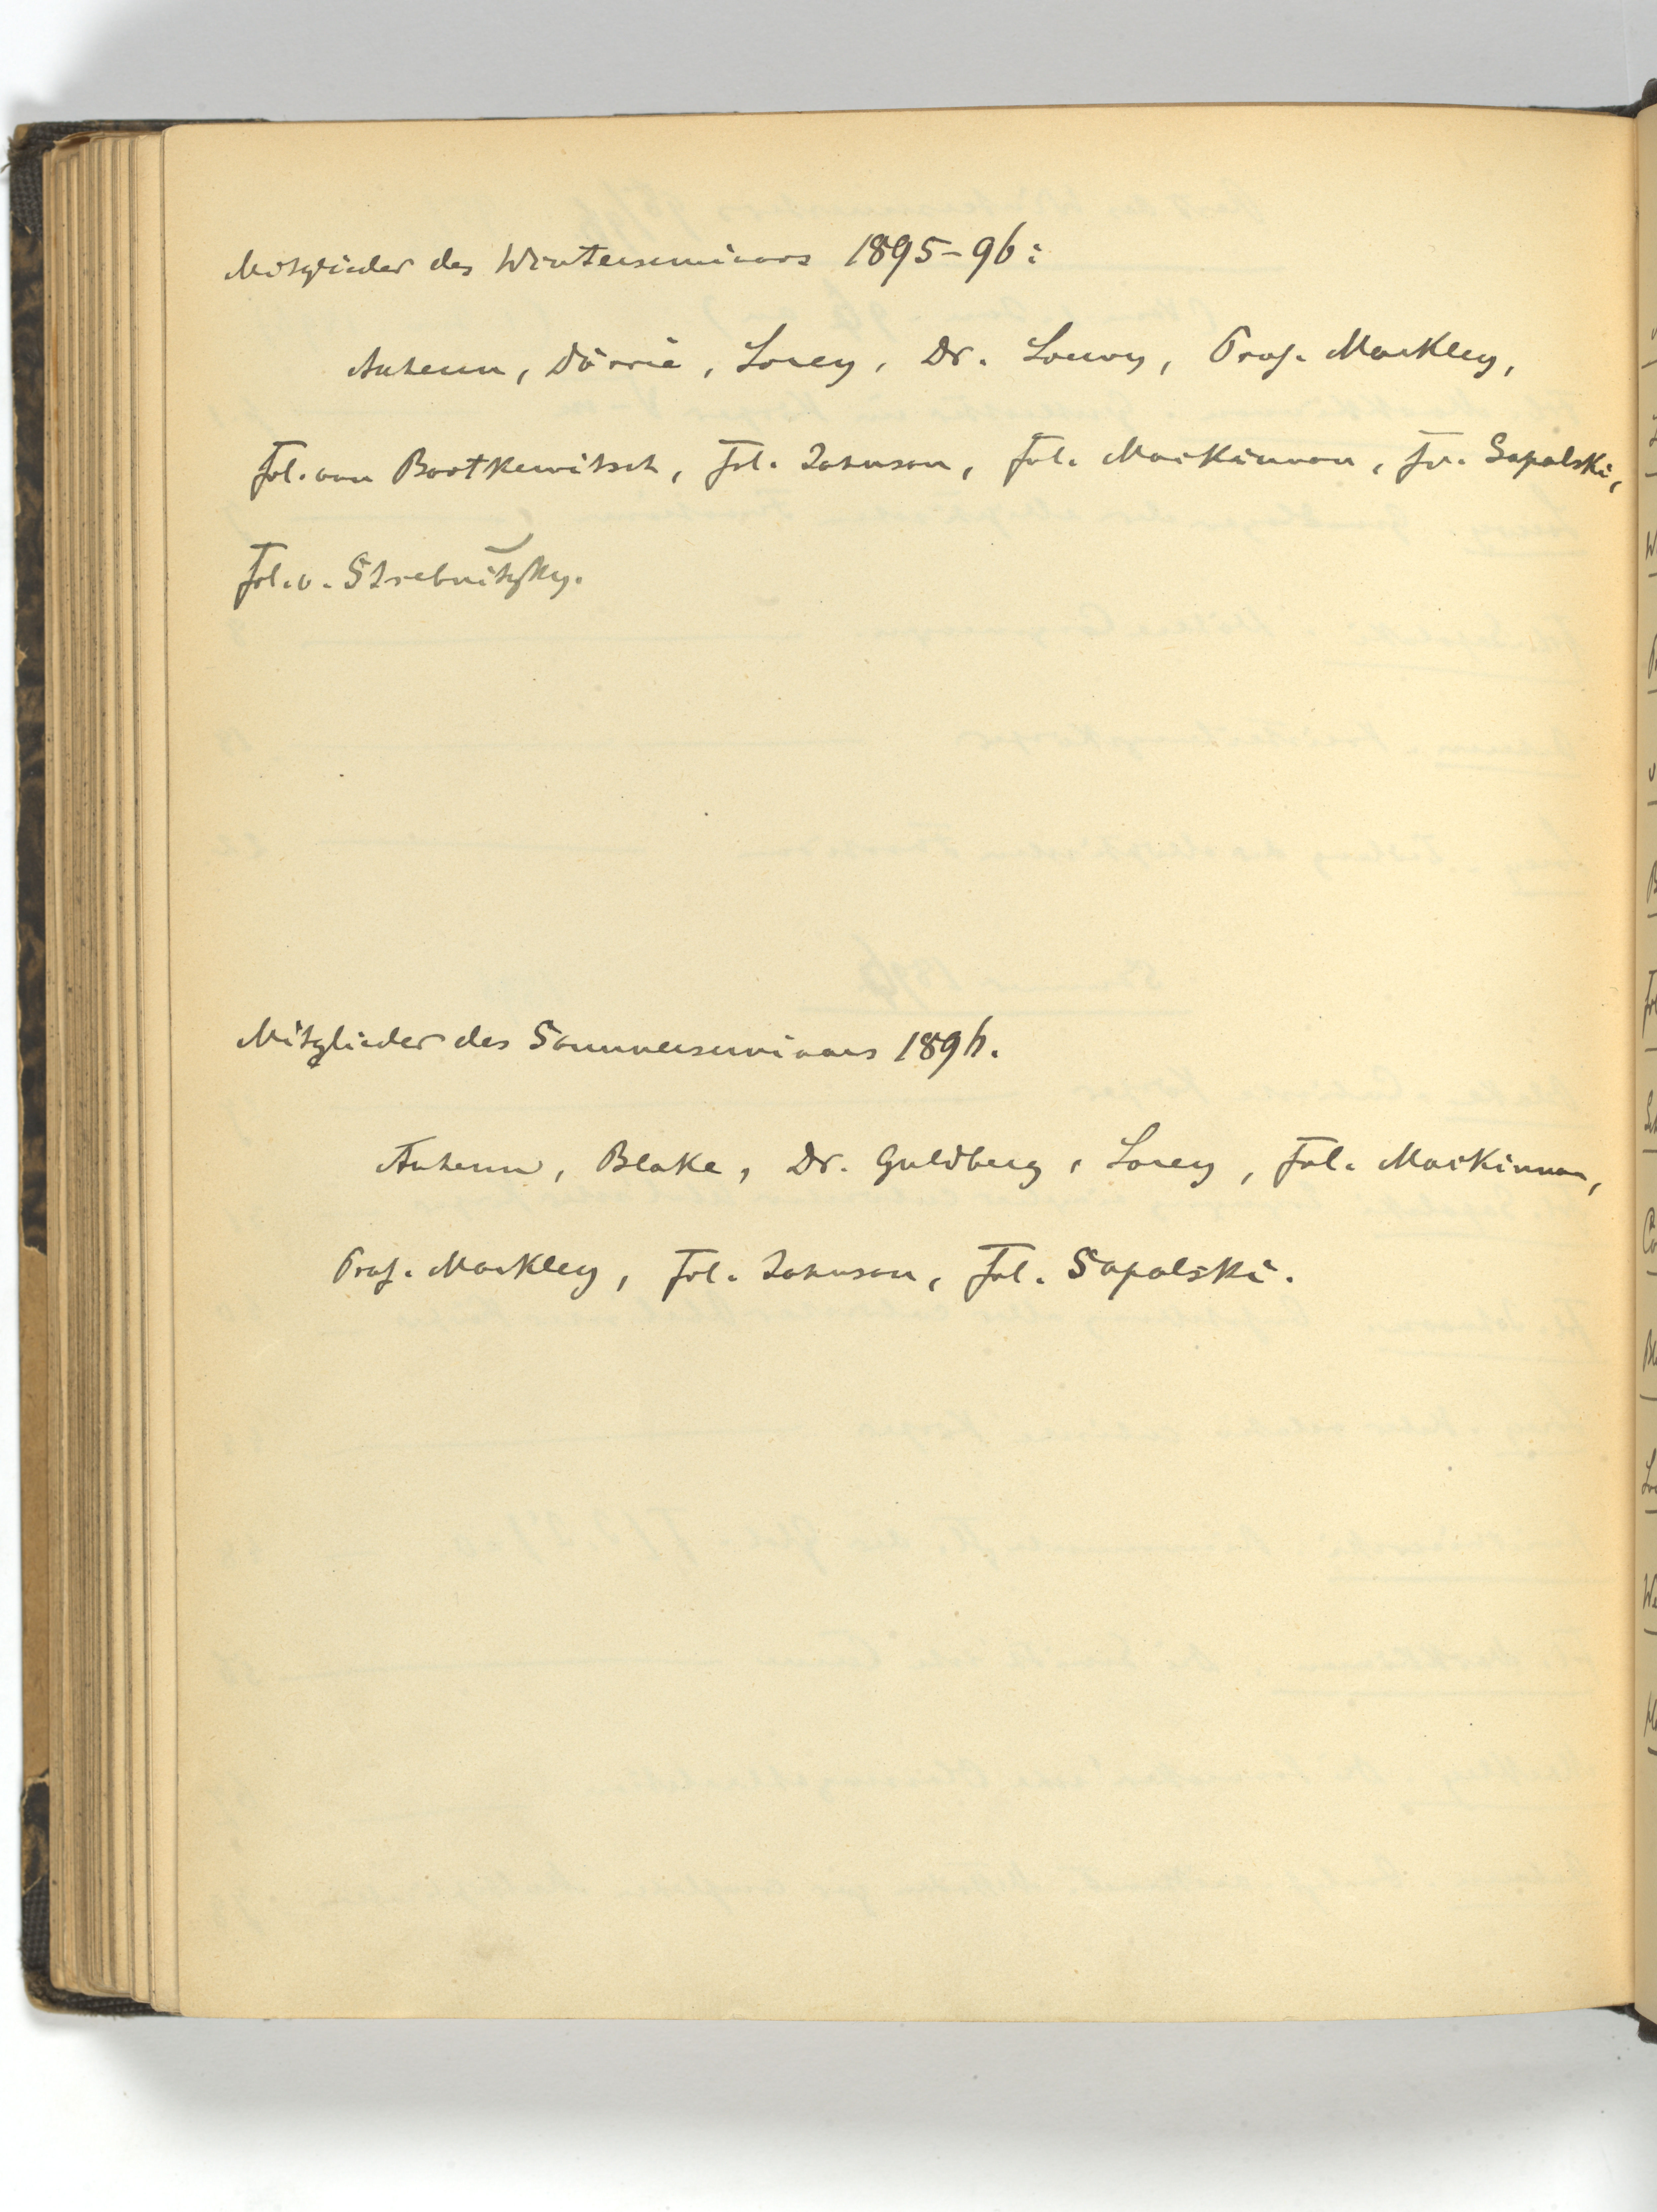 Mitglieder des Winterseminars 1895-96:
Anhenn, Dörrie, Lorey, Dr. Loewy, Prof. Markley,
Frl. von Bortkewitsch, Frl. Johnson, Frl. MacKinnon, Frl. Sapolski,
Frl. v. Strebnitzky.
Mitglieder des Sommerseminars 1896.
Anhenn, Blake, Dr. Guldberg, Lorey, Frl. MacKinnon,
Prof. Markley, Frl. Johnson, Frl. Sapolski.